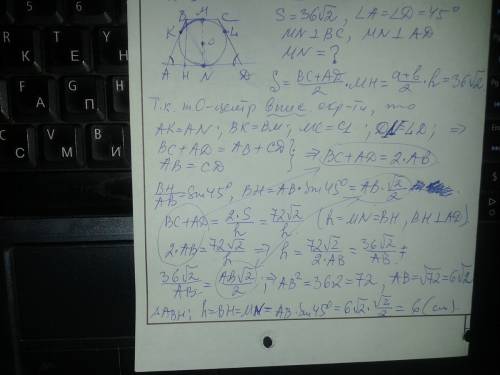 B M C
K L
O
A H N D
S = 36√2, ∠A = ∠D = 45°
MN ⊥ BC, MN ⊥ AD
MN = ?
S = (BC+AD)/2 · MH = (a+b)/2 · h = 36√2
Т.к. т.O-центр впис. окр-ти, то
AK=AN; BK=BM; MC=CL; =LD; ⇒
BC+AD = AB+CD } ⇒ BC+AD = 2·AB
AB = CD
BH/AB = sin45°, BH = AB·sin45° = AB·√2/2
BC+AD = 2·S/h = 72√2/h (h=MN=BH, BH⊥AD)
2·AB = 72√2/h ⇒ h = 72√2/2·AB = 36√2/AB
36√2/AB = AB√2/2; ⇒ AB² = 36·2 = 72, AB = √72 = 6√2
△ABH; h=BH=MN= AB·sin45° = 6√2·√2/2 = 6 (см)